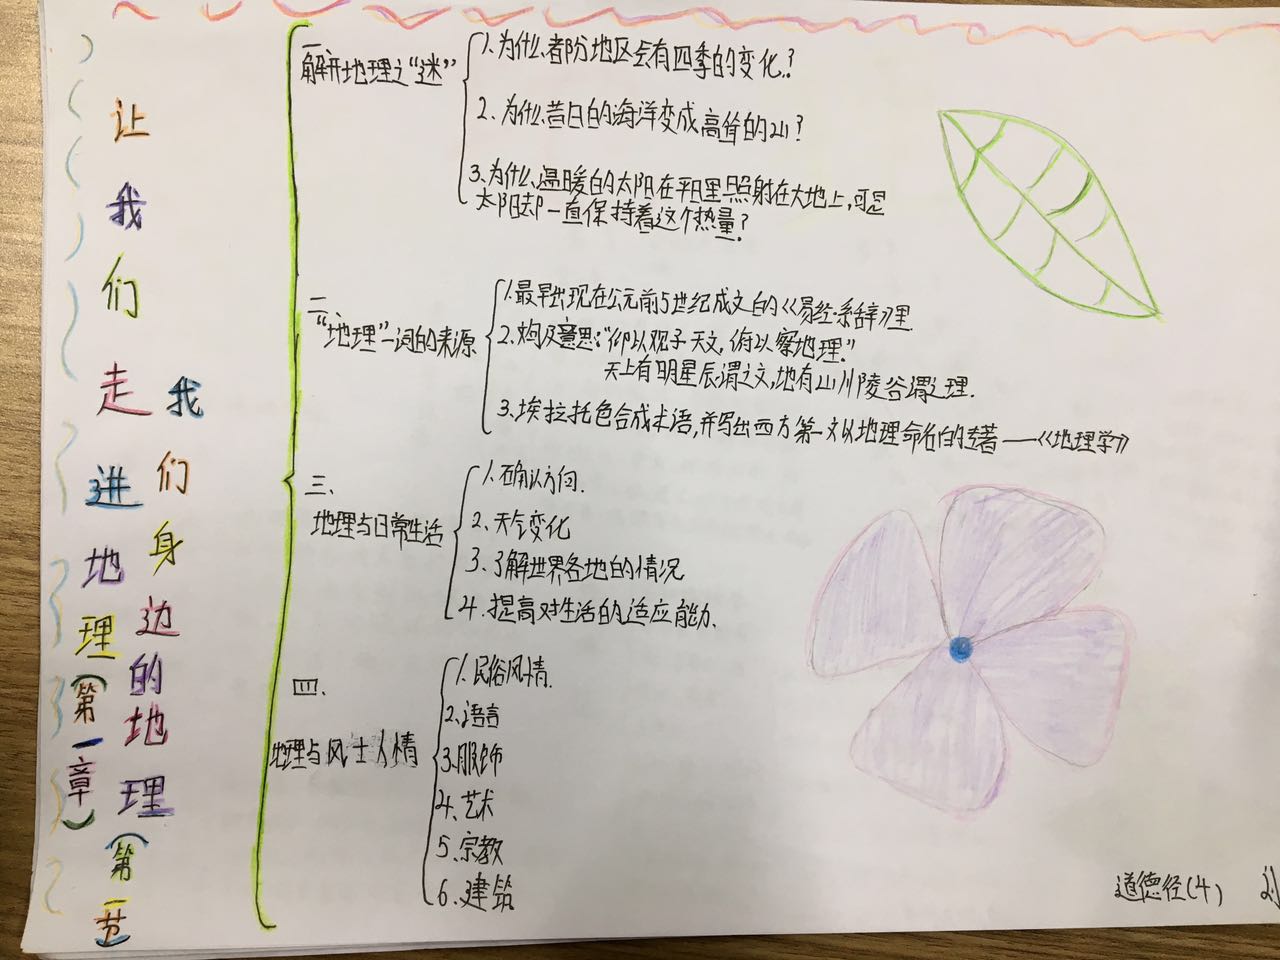 让我们走进地理(第一章)
我们身边的地理(第一节)
一、
解开地理之“迷”
1、为什么都部分地区会有四季的变化?
2、为什么昔日的海洋变成高耸的山?
3、为什么温暖的太阳在平日里照射在大地上,可是
太阳却一直保持着这个热量?
二、
“地理”一词的来源
1、最早出现在公元前5世纪成文的《易经·系辞》里
2、 及意思:“仰以观于天文,俯以察地理.”
天上有明星辰谓之文,地有山川陵谷谓之理.
3、埃拉托色合成术语,并写出西方第一文以地理命名的连著——《地理学》
三、
地理与日常生活
1、确认方向.
2、天气变化
3、了解世界各地的情况
4、提高对生活的适应能力.
四、
地理与风士人情
1、民俗风情.
2、语言
3、服饰
4、艺术
5、宗教
6、建筑
道德经(4)